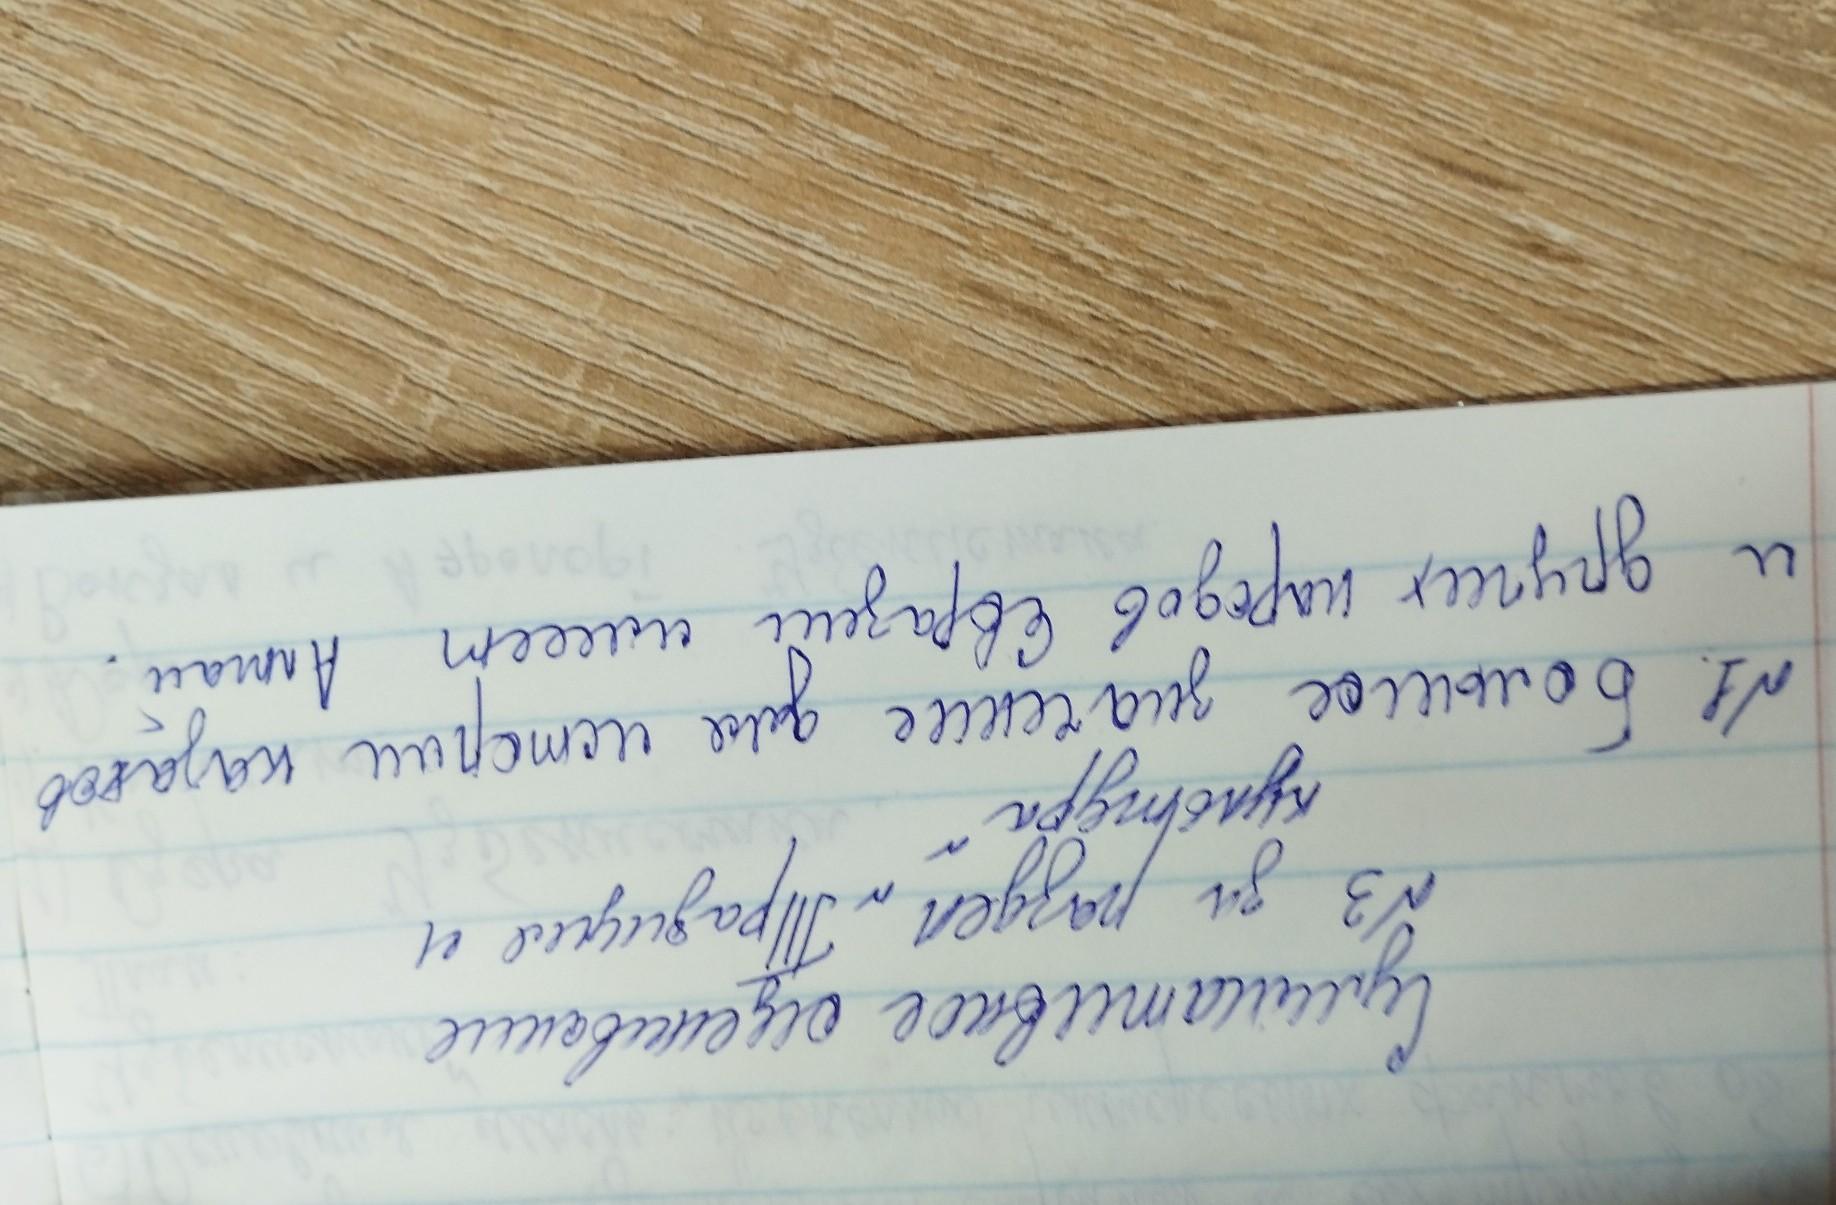 Суммативное оценивание
№3 за раздел "Традиции и
культура"
№1. Большое значение для истории казахов
и других народов Евразии имеет Алтай.